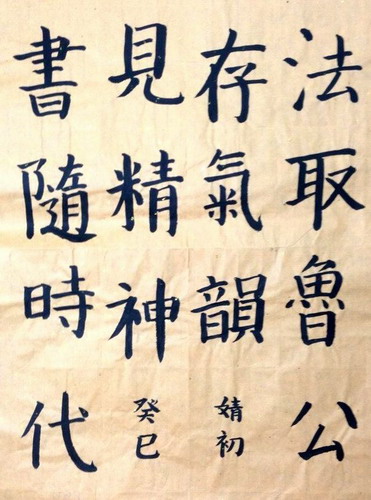 法取魯公
存氣韻
婧初
書隨時代
見精神
癸巳